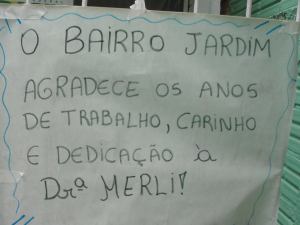 O BAIRRO JARDIM
AGRADECE OS ANOS
DE TRABALHO, CARINHO
E DEDICAÇÃO à
Drª MERLI!